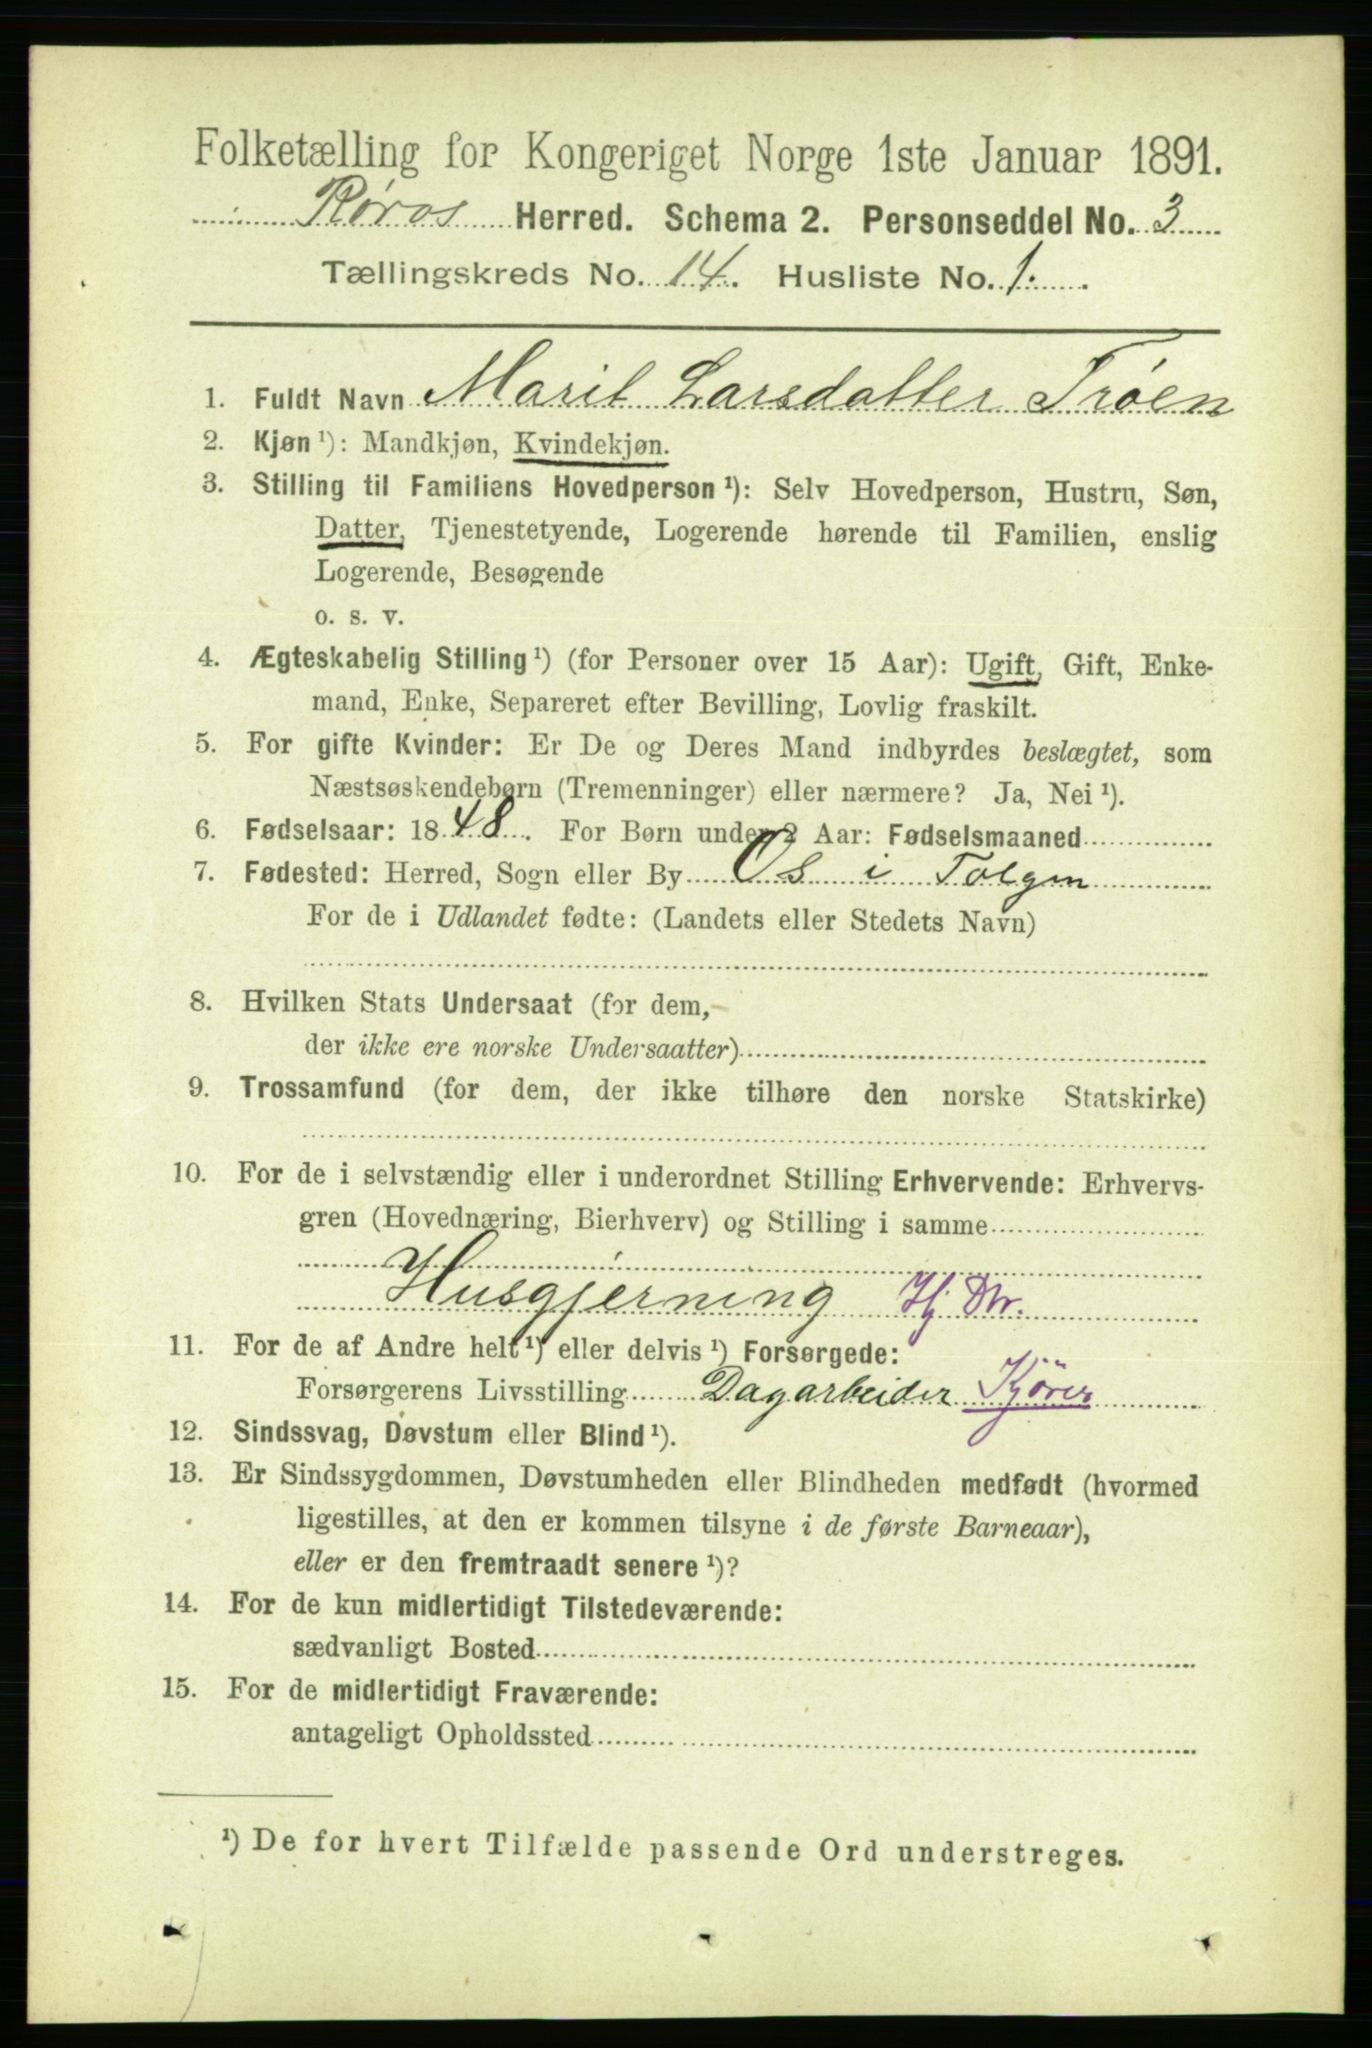 Folketælling for Kongeriget Norge 1ste Januar 1891.
Røros Herred. Schema 2. Personseddel No. 3
Tællingskreds No. 14. Husliste No. 1.
1. Fuldt Navn Marit Larsdatter Trøen
2. Kjøn ¹): Mandkjøn, Kvindekjøn.
3. Stilling til Familiens Hovedperson ¹): Selv Hovedperson, Hustru, Søn,
Datter, Tjenestetyende, Logerende hørende til Familien, enslig
Logerende, Besøgende
o. s. v.
4. Ægteskabelig Stilling ¹) (for Personer over 15 Aar): Ugift, Gift, Enke-
mand, Enke, Separeret efter Bevilling, Lovlig fraskilt.
5. For gifte Kvinder: Er De og Deres Mand indbyrdes beslægtet, som
Næstsøskendebørn (Tremenninger) eller nærmere? Ja, Nei ¹).
6. Fødselsaar: 1848. For Børn under 2 Aar: Fødselsmaaned
7. Fødested: Herred, Sogn eller By Os i Tolgen
For de i Udlandet fødte: (Landets eller Stedets Navn)
8. Hvilken Stats Undersaat (for dem,
der ikke ere norske Undersaatter)
9. Trossamfund (for dem, der ikke tilhøre den norske Statskirke)
10. For de i selvstændig eller i underordnet Stilling Erhvervende: Erhvervs-
gren (Hovednæring, Bierhverv) og Stilling i samme
Husgjerning Hj. Dtr.
11. For de af Andre helt ¹) eller delvis ¹) Forsørgede:
Forsørgerens Livsstilling Dagarbeider Kjører
12. Sindssvag, Døvstum eller Blind ¹).
13. Er Sindssygdommen, Døvstumheden eller Blindheden medfødt (hvormed
ligestilles, at den er kommen tilsyne i de første Barneaar),
eller er den fremtraadt senere ¹)?
14. For de kun midlertidigt Tilstedeværende:
sædvanligt Bosted
15. For de midlertidigt Fraværende:
antageligt Opholdssted
¹) De for hvert Tilfælde passende Ord understreges.